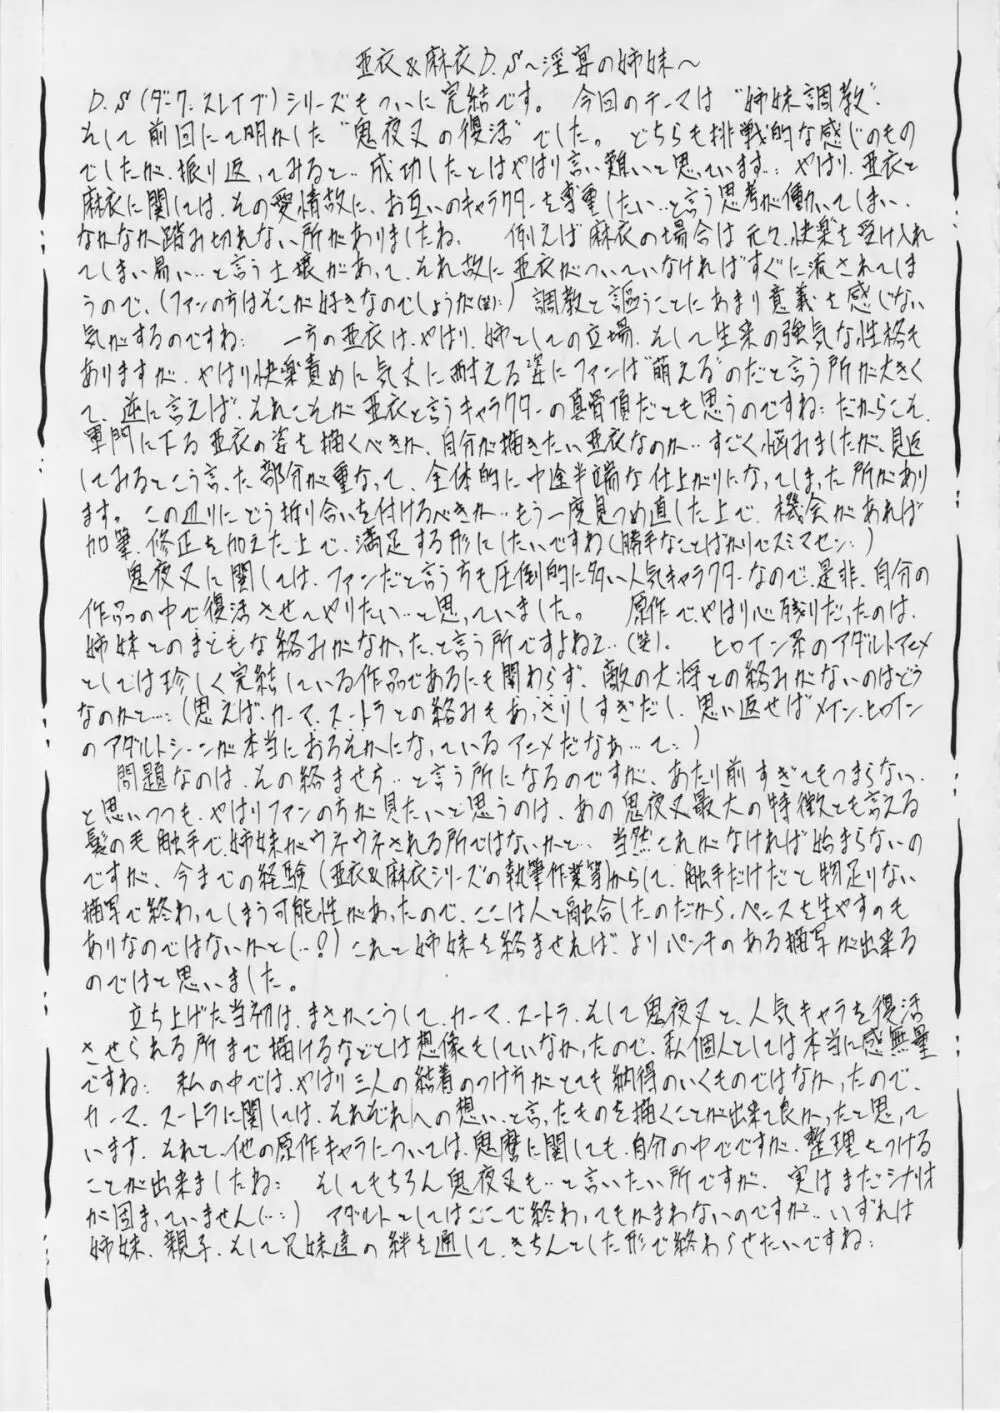 亜衣&麻衣D.S～淫宴の姉妹～
D.S(ダーク.スレイブ)シリーズもついに完結です。 今回のテーマは“姉妹調教”.
そして前回にて明かした“鬼夜叉の復活”でした。 どちらも挑戦的な感じのもの
でしたが、振り返ってみると… 成功したとはやはり言い難いと思っています… やはり、亜衣と
麻衣に関しては、その愛情故に、お互いのキャラクターを尊重したい…と言う思考が働いてしまい、
なかなか踏み切れない所がありましたね。 例えば麻衣の場合は元々、快楽を受け入れ
てしまい易い…と言う土壌があって、それ故に亜衣がついていなければすぐに流されてしま
うので、(ファンの方はそこが好きなのでしょうが(笑)…)調教と謳うことにあまり意義を感じない
気がするのですね… 一方の亜衣は、やはり、姉としての立場、そして生来の強気な性格も
ありますが、やはり快楽責めに気丈に耐える姿にファンは“萌える”のだと言う所が大きく
て、逆に言えば、それこそが亜衣と言うキャラクターの真骨頂だとも思うのですね… だからこそ、
軍門に下る亜衣の姿を描くべきか、自分が描きたい亜衣なのか… すごく悩みましたが、見返
してみるとこう言った部分が重なって、全体的に中途半端な仕上がりになってしまった所があり
ます。 この辺りにどう折り合いを付けるべきか… もう一度見つめ直した上で、機会があれば
加筆、修正を加えた上で、満足する形にしたいですね(勝手なことばかりでスミマセン…)
鬼夜叉に関しては、ファンだと言う方も圧倒的に多い人気キャラクターなので、是非、自分の
作品の中で復活させへやりたい…と思っていました。 原作でやはり心残りだったのは、
姉妹とのまともな絡みがなかった、と言う所ですよねェ…(笑)。 ヒロイン系のアダルトアニメ
としては珍しく完結している作品であるにも関わらず、敵の大将との絡みがないのはどう
なのかと…(思えば、カーマ、スートラとの絡みもあっさりしすぎだし、思い返せばメインヒロイン
のアダルトシーンが本当におろそかになっているアニメだなぁ…て…)
問題なのは、その絡ませ方…と言う所になるのですが、あたり前すぎてもつまらない…
と思いつつも、やはりファンの方が見たいと思うのは、あの鬼夜叉最大の特徴とも言える
髪の毛触手で、姉妹がウネウネされる所ではないかと… 当然これがなければ始まらないの
ですが、今までの経験(亜衣&麻衣シリーズの執筆作業等)からして、触手だけだと物足りない
描写で終わってしまう可能性があったので、ここは人と融合したのだから、ペニスを生やすのも
ありなのではないかと(…?)これと姉妹を絡ませれば、よりパンチのある描写が出来る
のではと思いました。
立ち上げた当初は、まさかこうして、カーマ、スートラ、そして鬼夜叉と、人気キャラを復活
させられる所まで描けるなどとは想像もしていなかったので、私個人としては本当に感無量
ですね… 私の中では、やはり三人の結着のつけ方がとても納得のいくものではなかったので、
カーマ、スートラに関しては、それぞれへの想い、と言ったものを描くことが出来て良かったと思って
います。それと、他の原作キャラについては、鬼麿に関しても、自分の中でですが、整理をつける
ことが出来ましたね… そしてもちろん鬼夜叉も…と言いたい所ですが、実はまだシナリオ
が固まっていません(…) アダルトとしてはここで終わってもかまわないのですが… いずれは
姉妹、親子、そして兄妹達の絆を通して、きちんとした形で終わらせたいですね…